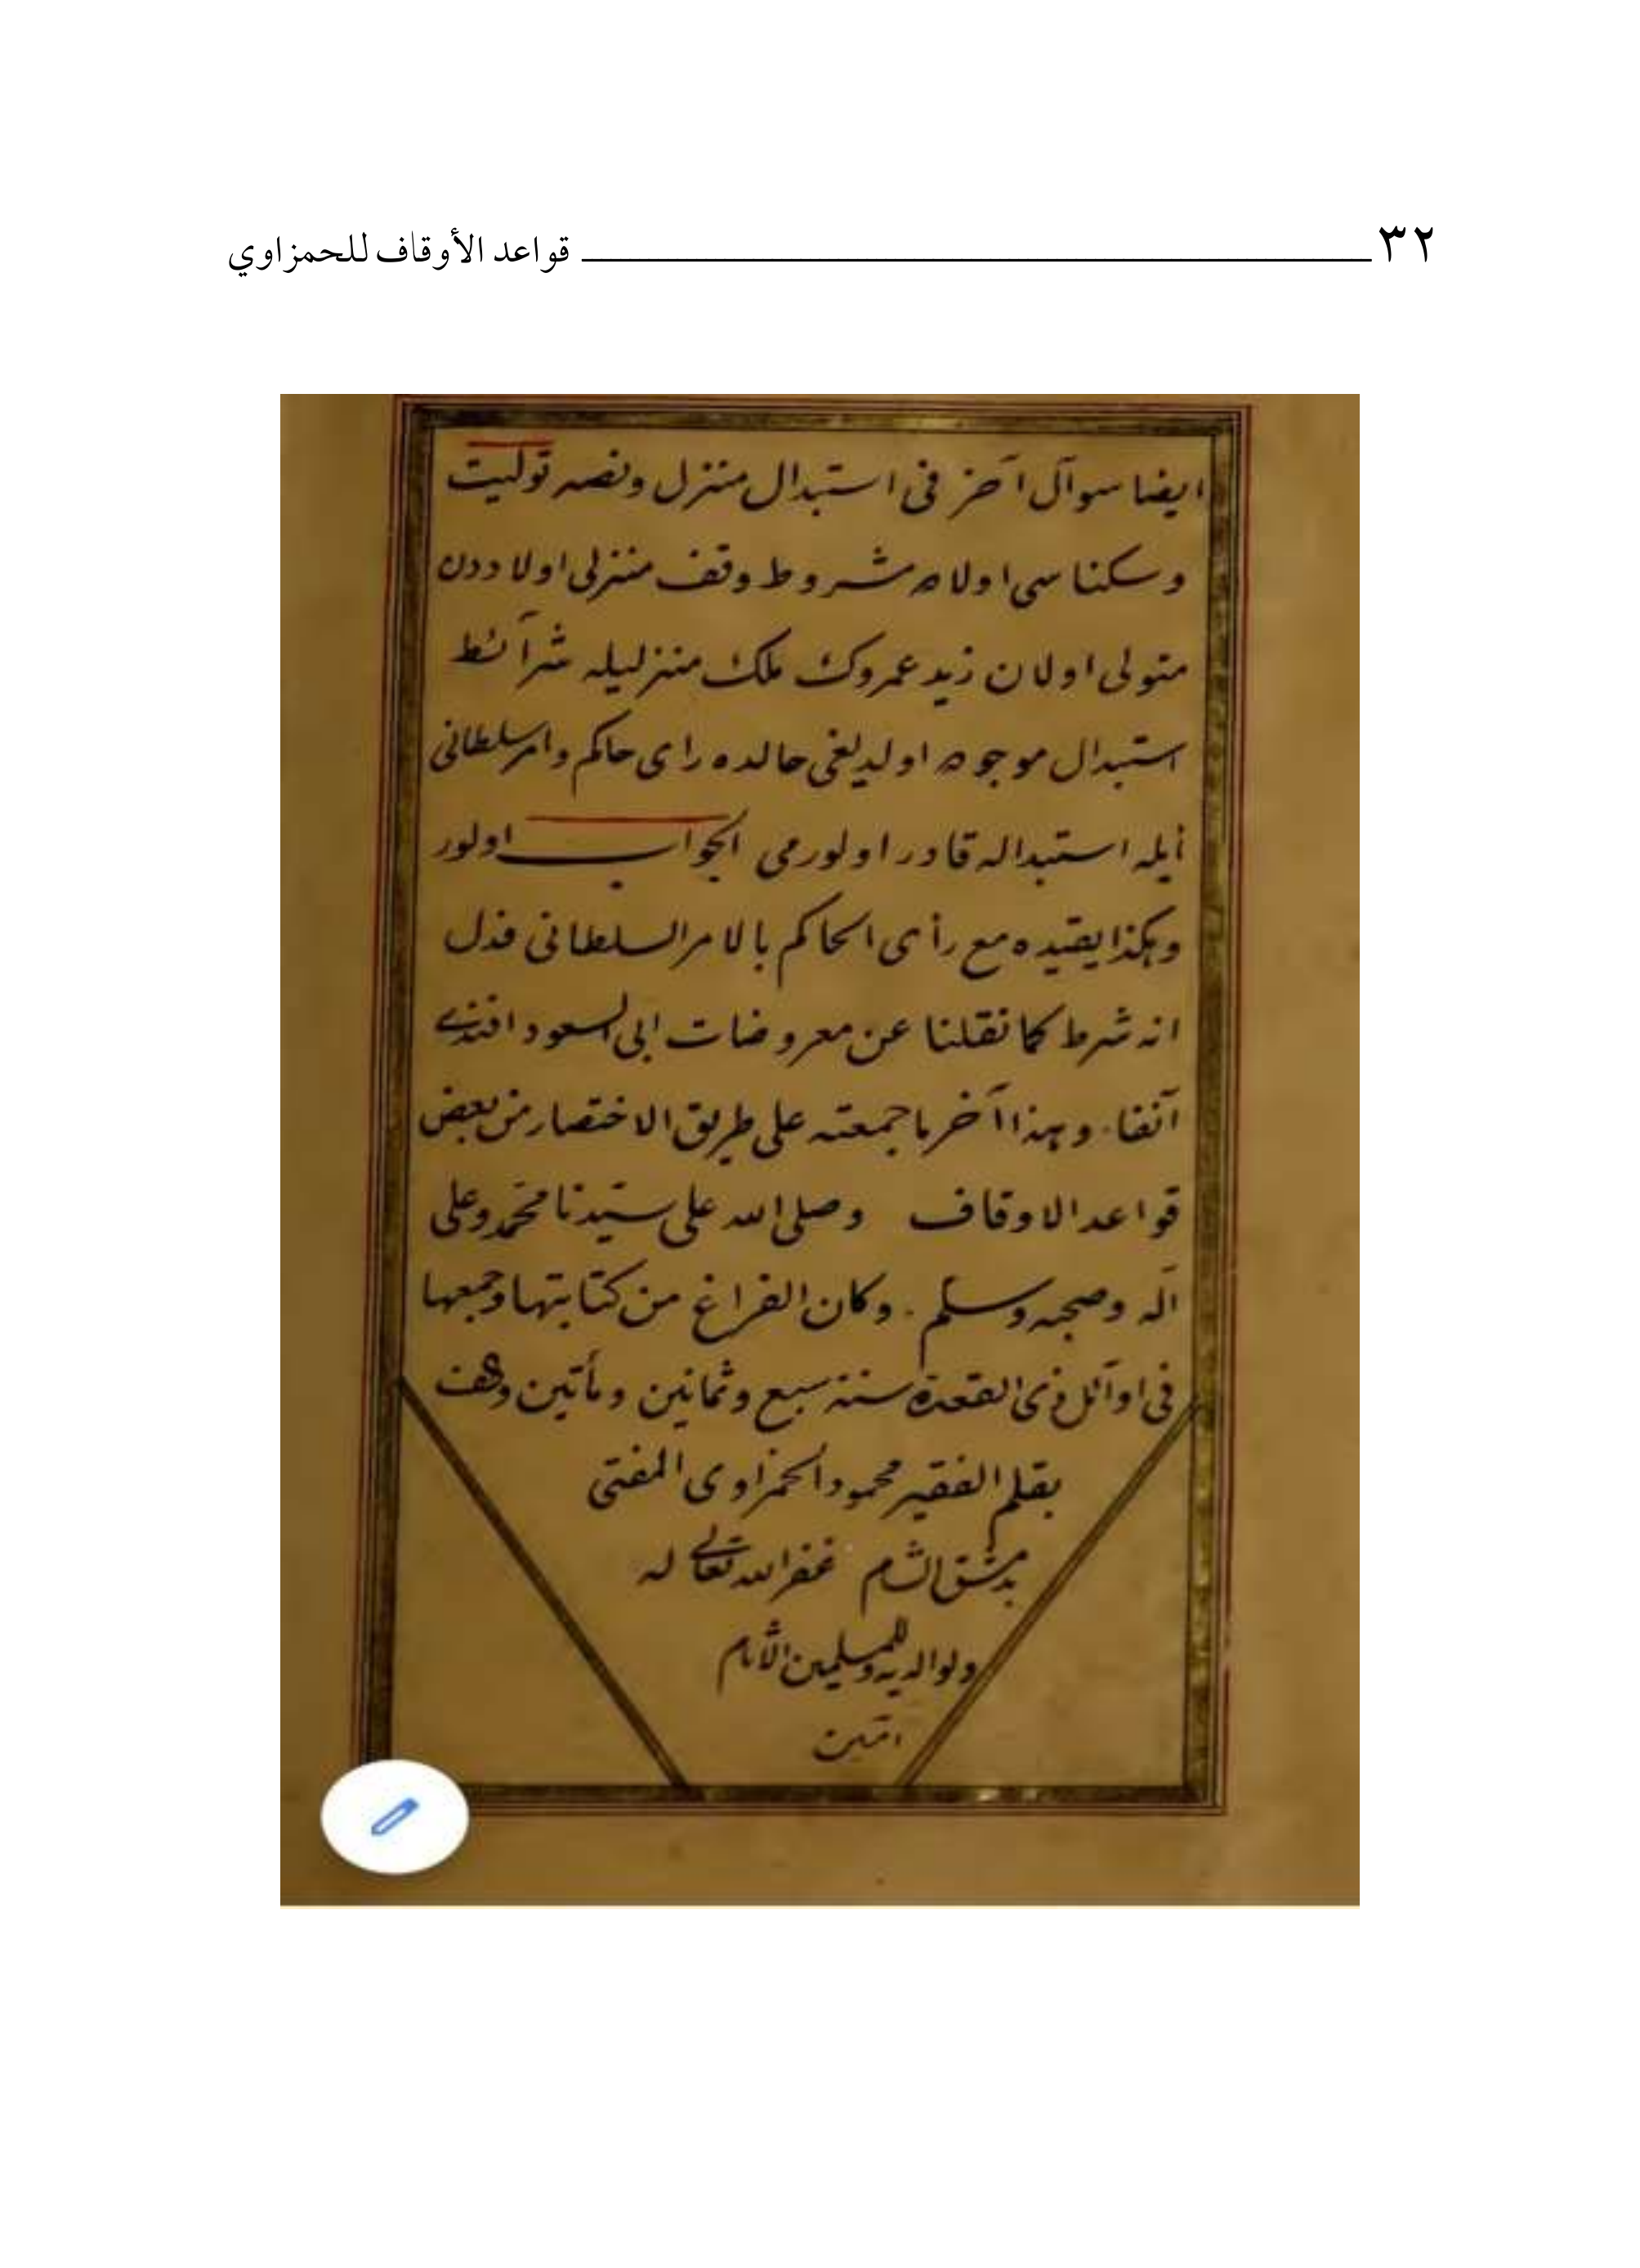 ٣٢ قواعد الأوقاف للحمزاوي
ايضا سوآل آخر فى استبدال منزل ونصه توليت
وسكناسى اولاده مشروط وقف منزلى اولاددن
متولى اولان زيد عمروك ملك منزليله شرآئط
استبدال موجوده اولديغى حالده راى حاكم وامر سلطانى
ايله استبداله قادر اولورمى الجواب اولور
وهكذا يقيده مع رأى الحاكم بالامر السلطانى فدل
انه شرط كما نقلنا عن معروضات ابى السعود افندى
آنفا. وهذا آخر ما جمعته على طريق الاختصار من بعض
قواعد الاوقاف وصلى الله على سيّدنا محمّد وعلى
آله وصحبه وسلم. وكان الفراغ من كتابتها وجمعها
فى اوآئل ذى القعدة سنة سبع وثمانين ومأتين والف
بقلم الفقير محمود الحمزاوى المفتى
بدمشق الشام غفر الله تعالى له
ولوالديه وللمسلمين
امّين